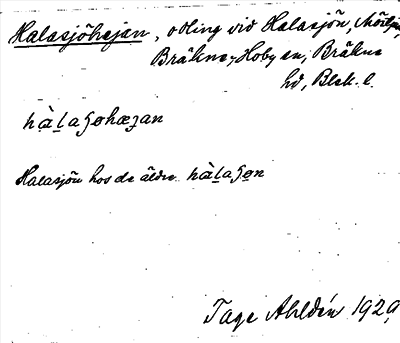 Halasjöhejan, odling vid Halasjön,
Bräkne-Hoby sn, Bräkne
hd, Blek. l.
hàla̱ʃøhæʒan
Halasjön hos de äldre hàla̱ʃø̱n
Tage Ahldén 1929